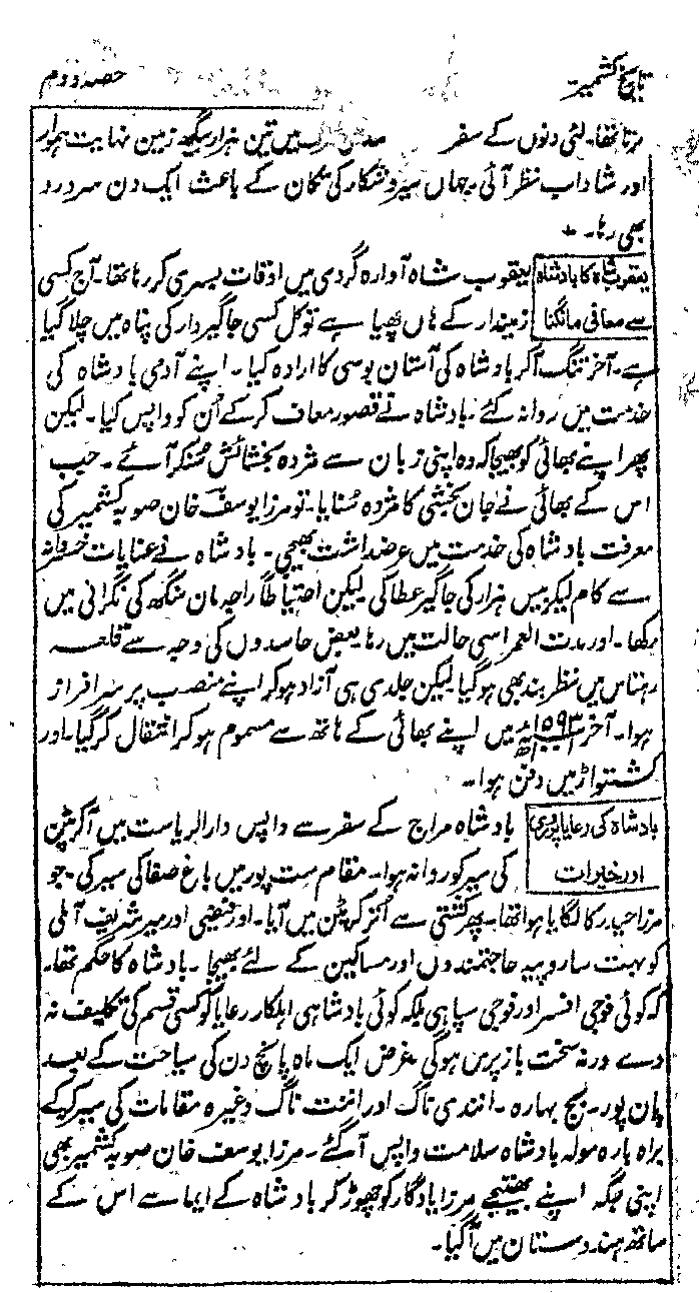 تاریخ کشمیر
حصہ دوم
تھا۔ کئی دنوں کے سفر میں تین ہزار بیگھ زمین نہایت ہموار
اور شاداب نظر آئی یہاں سیر و شکار کی تکان کے باعث ایک دن سر درد
بھی رہا۔
یعقوب شاہ کا بادشاہ
سے معافی مانگنا
یعقوب شاہ آوارہ گردی میں اوقات بسری کر رہا تھا۔ آج کسی
زمیندار کے ہاں چھپا ہے تو کل کسی جاگیردار کی پناہ میں چلا گیا
ہے۔ آخر تنگ آکر بادشاہ کی آستان بوسی کا ارادہ کیا۔ اپنے آدمی بادشاہ کی
خدمت میں روانہ کئے۔ بادشاہ نے قصور معاف کر کے اُن کو واپس کیا۔ لیکن
پھر اپنے بھائی کو بھیجا کہ وہ اپنی زبان سے مژدہ بخشائش سُنکر آئے۔ جب
اس کے بھائی نے جان بخشی کا مژدہ سُنایا۔ تو مرزا یوسف خان صوبہ کشمیر کی
معرفت بادشاہ کی خدمت میں عرضداشت بھیجی۔ بادشاہ نے عنایات خسروانہ
سے کام لیکر بیس ہزار کی جاگیر عطا کی لیکن احتیاطاً راجہ مان سنگھ کی نگرانی میں
رکھا۔ اور مدت العمر اسی حالت میں رہا بعض حاسدوں کی وجہ سے قلعہ
رہتاس میں نظر بند بھی ہو گیا لیکن جلدی ہی آزاد ہو کر اپنے منصب پر سرافراز
ہوا۔ آخر ۱۵۹۳ء میں اپنے بھائی کے ہاتھ سے مسموم ہو کر انتقال کر گیا۔ اور
کشتواڑ میں دفن ہوا۔
بادشاہ کی رعایا پروری
اور خیرات
بادشاہ مراج کے سفر سے واپس دارالریاست میں آکر پٹن
کی سیر کو روانہ ہوا۔ مقام ست پور میں باغ صفا کی سیر کی۔ جو
مرزا حیدر کا لگایا ہوا تھا۔ پھر کشتی سے اُتر کر پٹن میں آیا۔ اور فیضی اور میر شریف آملی
کو بہت سا روپیہ حاجتمندوں اور مساکین کے لئے بھیجا۔ بادشاہ کا حکم تھا۔
کہ کوئی فوجی افسر اور فوجی سپاہی بلکہ کوئی بادشاہی اہلکار رعایا کو کسی قسم کی تکلیف نہ
دے ورنہ سخت باز پرس ہو گی۔ غرض ایک ماہ پانچ دن کی سیاحت کے بعد
پان پور۔ بیج بہارہ۔ انندی ناگ اور اننت ناگ وغیرہ مقامات کی سیر کر کے
براہ بارہ مولہ بادشاہ سلامت واپس آ گئے۔ مرزا یوسف خان صوبہ کشمیر بھی
اپنی جگہ اپنے بھتیجے مرزا یادگار کو چھوڑ کر بادشاہ کے ایما سے اس کے
ساتھ ہندوستان میں آ گیا۔